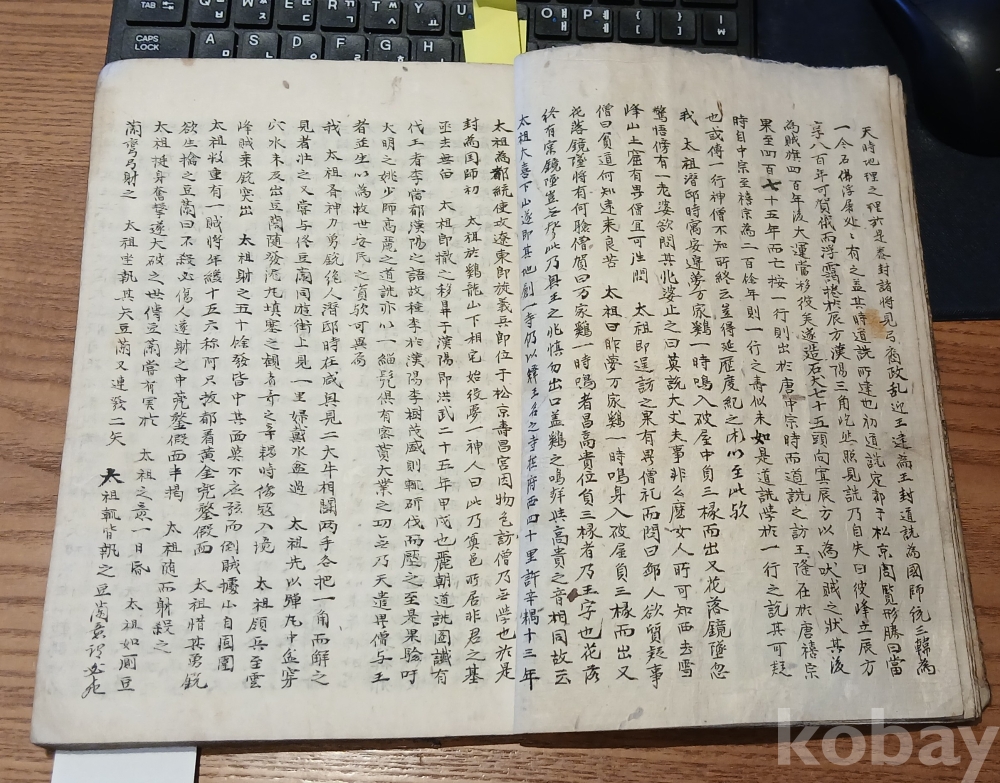 天時地理之理於是泰封諸將見弓裔政乱迎王達為王封道詵為國師統三韓為
一今石佛浮屠处〻有之盖其時道詵所建也初道詵定都于松京周覧形勝曰當
享八百年可賀俄而浮靄捲於辰方漢陽三角屹然照見詵乃自失曰彼峰在辰方
為賊旗四百年後大運當移彼矣遂造石犬七十五頭向寘辰方以為吠賊之状其後
果至四百七十五年而亡按一行則出於唐中宗時而道詵之訪王隆在於唐禧宗
時自中宗至禧宗為二百餘年則一行之壽似未如是道詵學於一行之說其可疑
也或傳一行神僧不知所終云豈得延歷度紀之術以至此欤
我 太祖潜邸時寓安邊夢万家鷄一時鳴入破屋中負三椽而出又花落鏡墜忽
驚悟傍有一老婆欲問其兆婆止之曰莫說大丈夫事非么麽女人所可知西去雪
峰山土窟有異僧宜可往問 太祖即逞訪之果有異僧礼而問曰鄙人欲質疑事
僧曰貧道何知遠来良苦 太祖曰昨夢万家鷄一時鳴身入破屋負三椽而出又
花落鏡墜将有何驗僧贺曰万家鷄一時鳴者昌高貴位負三椽者乃王字也花落
終有实鏡墜豈無聲此乃興王之兆慎勿出口盖鷄之鳴與高貴之音相同故云
太祖大喜下山遂即其地創一寺仍以釋王名之寺在府西四十里許辛禑十三年
太祖為都統使攻遼東即旋義兵即位于松京壽昌宮因物色訪僧乃無學也於是
封為国師初 太祖於鷄龍山下相宅始役夢一神人曰此乃奠邑所居非君之基
亟去無留 太祖即撤之移昇于漢陽即洪武二十五年甲戌也麗朝道詵圖讖有
代王者李當都漢陽之語故種李於漢陽李樹茂盛則輒斫伐而壓之至是果驗吁
大明之姚少師高麗之道詵亦以一緇髡俱有密贊大業之功无乃天遣異僧与王
者並生以為救世安民之資欤可異焉
我 太祖各神力勇銳绝人潜邸時在咸興見二大牛相鬪两手各把一角而解之
見者壮之又嘗与佟豆蘭同遊街上見一里婦戴水盆過 太祖先以弹丸中盆穿
穴水未及出豆蘭随發泥丸填塞之観者奇之辛禑時倭寇入境 太祖領兵至雲
峰賊乘銳突出 太祖射之五十餘發皆中其面莫不应弦而倒賊據山自固圍
太祖数重有一賊将年纔十五六称阿只拔都着黄金兜鍪假面 太祖惜其勇銳
欲生擒之豆蘭曰不殺必傷人遂射之中兜鍪假面半揭 太祖随而射殺之
太祖挺身奮擊遂大破之世傳豆蘭嘗有異志 太祖之意一日昏 太祖如厠豆
蘭彎弓射之 太祖坐執其矢豆蘭又連發二矢 太祖輒皆執之豆蘭意謂必死
TAB
CAPS LOCK
A S D F G H J
kobay